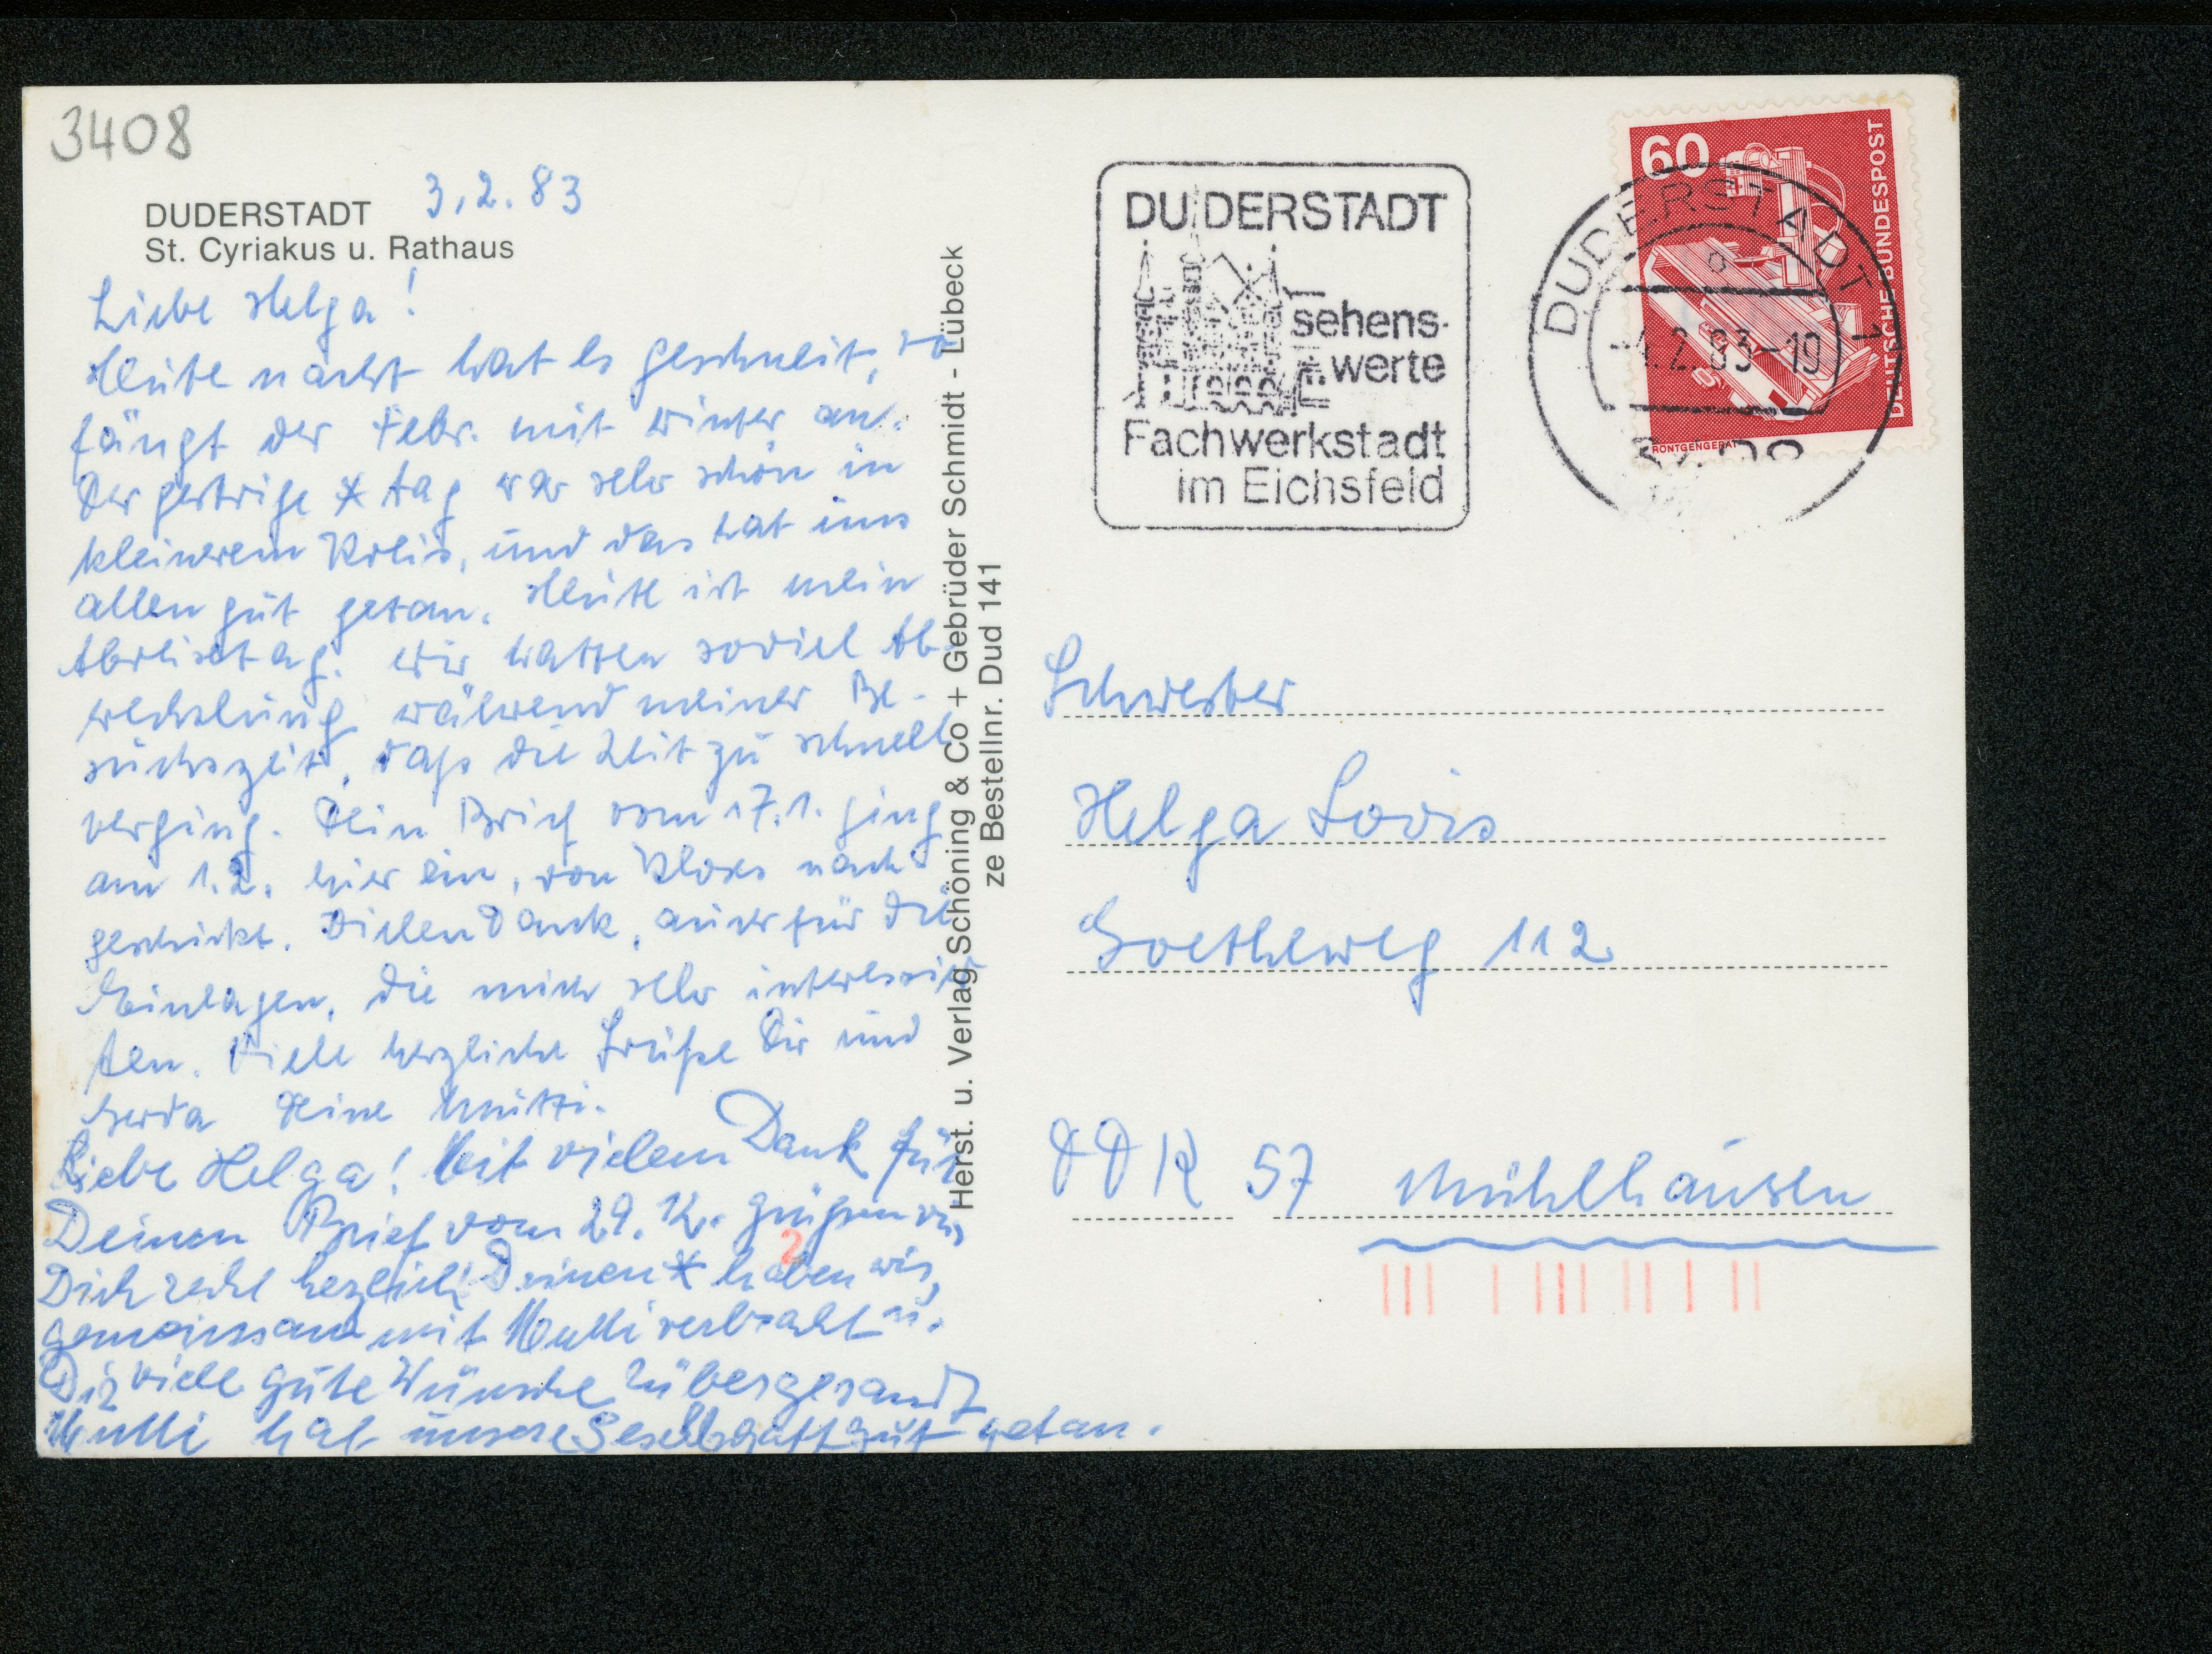 3408
3.2.83
DUDERSTADT
St. Cyriakus u. Rathaus
Liebe Helga!
Heute nacht hat es geschneit, so
fängt der Febr. mit Winter an.
Der gestrige * tag war sehr schön in
kleinerem Kreis, und das hat uns
allen gut getan. Heute ist mein
Abreisetag. Wir hatten soviel Ab-
wechslung während meiner Be-
suchszeit, daß die Zeit zu schnell
verging. Dein Brief vom 17.1. ging
am 1.2. hier ein, von Kloses nach-
geschickt. Vielen Dank, auch für die
Einlagen, die mich sehr interessier
ten. Viele herzliche Grüße Dir und
Gerda Deine Mutti.
Liebe Helga! Mit vielem Dank für
Deinen Brief vom 29. 12. grüßen wir
Dich recht herzlich! Deinen * haben wir
gemeinsam mit Mutti verbracht u.
Dir viele gute Wünsche rübergesandt
Mutti hat unsere Gesellschaft gut getan.
Herst. u. Verlag Schöning & Co + Gebrüder Schmidt - Lübeck
ze Bestellnr. Dud 141
DUDERSTADT
sehens-
werte
Fachwerkstadt
im Eichsfeld
60
DEUTSCHE BUNDESPOST
RÖNTGENGERÄT
DUDERSTADT 1
-4.2.83-19
3408
Schwester
Helga Lovis
Goetheweg 112
DDR 57 Mühlhausen
2